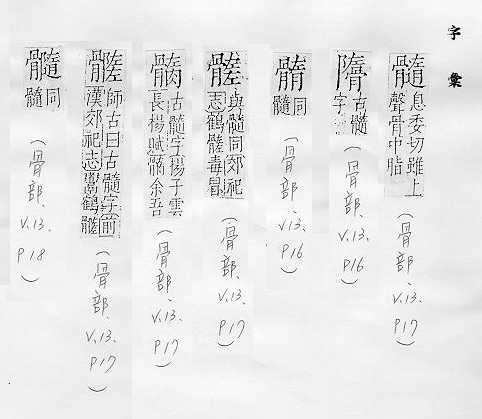 字彙
髓 息委切雖上
聲骨中脂
(骨部、V.13、P17)
古髓
字
(骨部、V.13、P16)
同
髓
(骨部、V.13、P16)
與髓同郊祀
志鶴 毒冒
(骨部、V.13、P17)
古髓字揚子雲
長楊賦 余吾
(骨部、V.13、P17)
師古曰古髓字前
漢郊祀志鬻鶴
(骨部、V.13、P17)
同
髓
(骨部、V.13、P18)